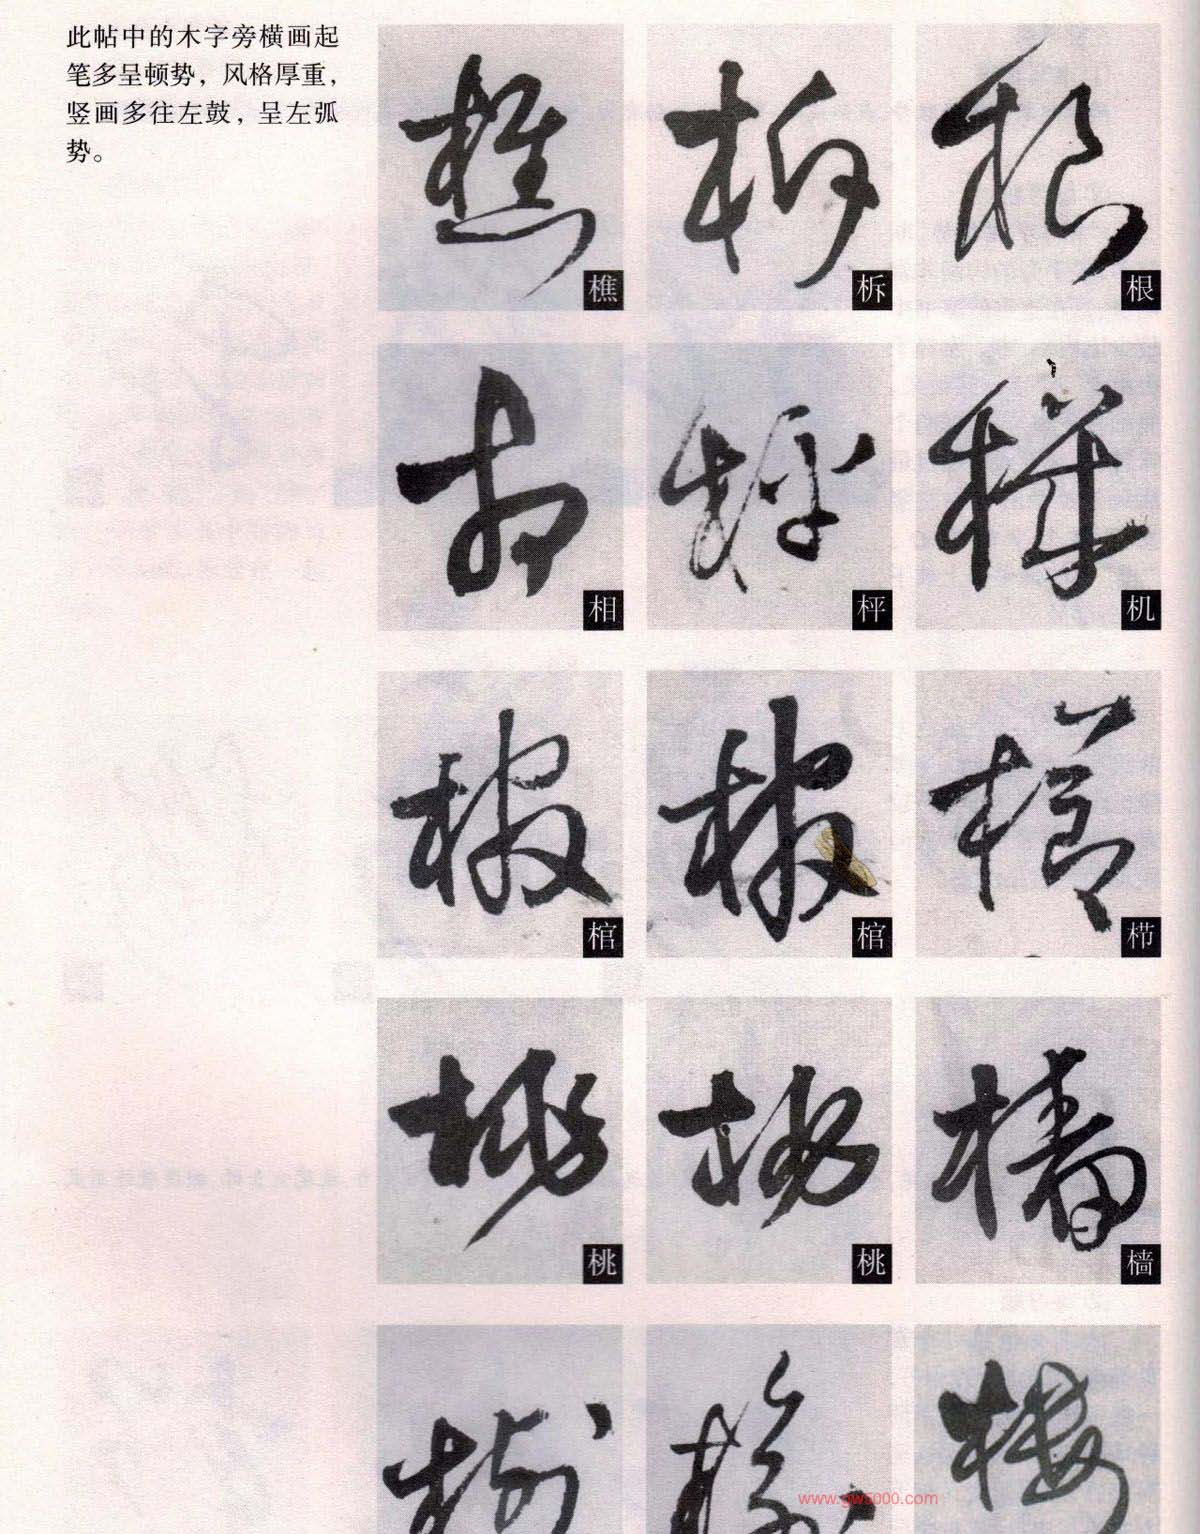 此帖中的木字旁横画起
笔多呈顿势，风格厚重，
竖画多往左鼓，呈左弧
势。
樵
柝
根
相
枰
机
棺
棺
栉
桃
桃
樯
www.gw5000.com